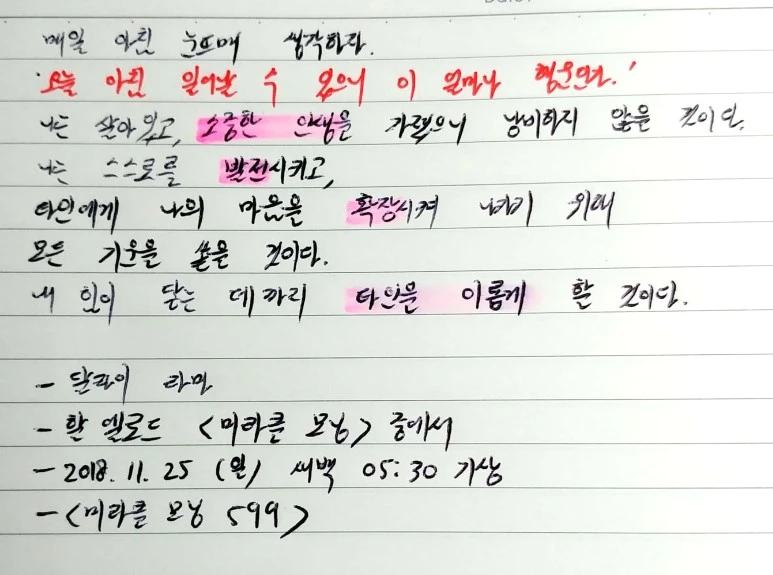 매일 아침 눈뜨며 생각하자.
'오늘 아침 일어날 수 있으니 이 얼마나 행운인가.'
나는 살아 있고, 소중한 인생을 가졌으니 낭비하지 않을 것이다.
나는 스스로를 발전시키고,
타인에게 나의 마음을 확장시켜 나가기 위해
모든 기운을 쏟을 것이다.
내 힘이 닿는 데까지 타인을 이롭게 할 것이다.
- 달라이 라마
- 할 엘로드 <미라클 모닝> 중에서
- 2018. 11. 25 (일) 새벽 05:30 기상
- <미라클 모닝 599>